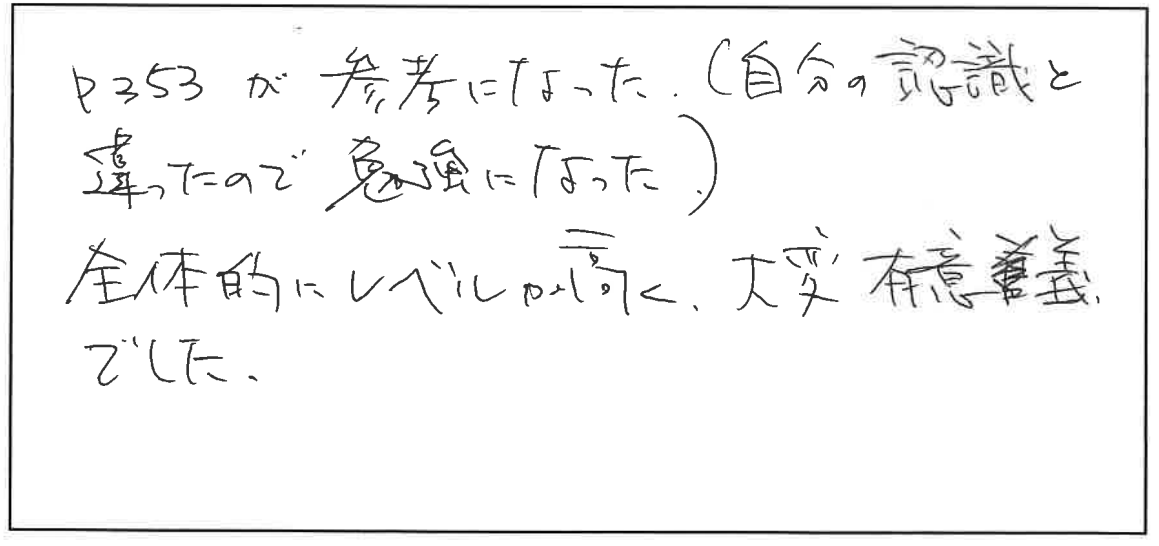 P353 が 参考になった.(自分の認識と
違ったので 勉強になった.)
全体的にレベルが高く、大変 有意義
でした.